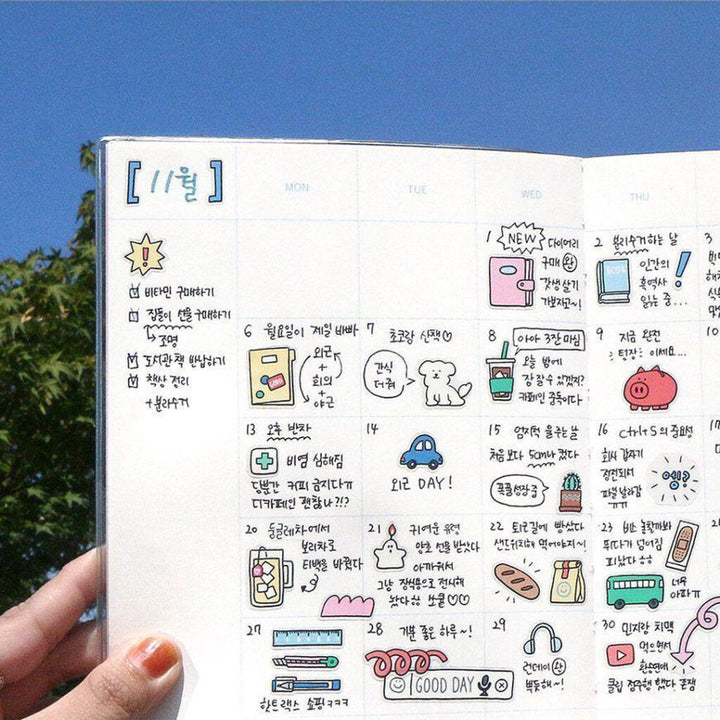 [11월]
MON
TUE
WED
THU
비타민 구매하기
집들이 선물 구매하기
조명
도서관 책 반납하기
책상 정리
+분리수거
1
NEW
다이어리
구매 완
갓생살기
가보자고~!
2 분리수거하는 날
BOOK
인간의
흑역사
읽는 중...
3
6 월요일이 제일 바빠
외근
+
회의
+
야근
7 초코랑 산책♡
간식
더 줘
8 아아 3잔 마심
오늘 밤에
잠 잘 수 있겠지?
카페인 중독이다
9 지금 완전
텅장이세요...
10
13 오후 반차
비염 심해짐
당분간 커피 금지다ㅠ
디카페인 괜찮나?!?
14
외근 DAY!
15 엄지척 들구는 날
처음보다 5cm나 컸다
쪽쪽성장중
16 ctrl+S의 중요성
회사 갑자기
정전되서
파일 날라감
ㅠㅠ
20 둥굴레차에서
보리차로
티백을 바꿨다
21 귀여운 유령
양초 선물 받았다
아까워서
그냥 장식용으로 전시해
놨다ㅎㅎ 쏘쿨♡♡
22 퇴근길에 빵샀다
샌드위치해 먹어야지~!
23 버스 놓칠까봐
뛰다가 넘어짐
피났다ㅎㅎ
너무
아파ㅠ
27
핫트랙스 쇼핑ㅋㅋㅋ
28 기분 좋은 하루~!
GOOD DAY
29
런데이 완
뿌듯해~!
30 민지랑 치맥
먹으면서
환승연애
클립 정주행 했다 존잼